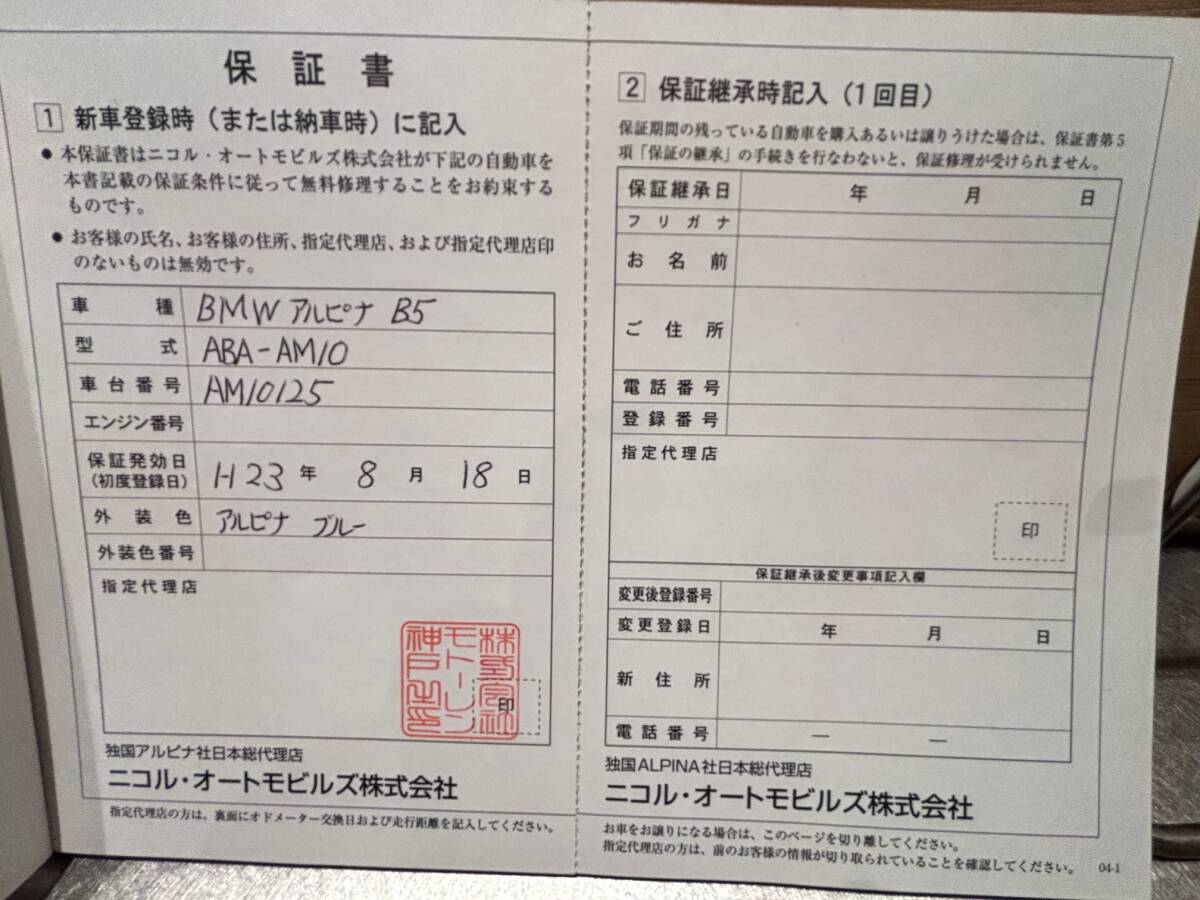 保証書
1 新車登録時(または納車時)に記入
● 本保証書はニコル・オートモビルズ株式会社が下記の自動車を
本書記載の保証条件に従って無料修理することをお約束する
ものです。
● お客様の氏名、お客様の住所、指定代理店、および指定代理店印
のないものは無効です。
車種 BMW アルピナ B5
型式 ABA-AM10
車台番号 AM10125
エンジン番号
保証発効日
(初度登録日) H23年 8月 18日
外装色 アルピナ ブルー
外装色番号
指定代理店
株式会社
モトーレン
神戸之印
印
独国アルピナ社日本総代理店
ニコル・オートモビルズ株式会社
指定代理店の方は、裏面にオドメーター交換日および走行距離を記入してください。
2 保証継承時記入(1回目)
保証期間の残っている自動車を購入あるいは譲りうけた場合は、保証書第5
項「保証の継承」の手続きを行なわないと、保証修理が受けられません。
保証継承日 年 月 日
フリガナ
お名前
ご住所
電話番号
登録番号
指定代理店
印
保証継承後変更事項記入欄
変更後登録番号
変更登録日 年 月 日
新住所
電話番号 — —
独国ALPINA社日本総代理店
ニコル・オートモビルズ株式会社
お車をお譲りになる場合は、このページを切り離してください。
指定代理店の方は、前のお客様の情報が切り取られていることを確認してください。
04-1